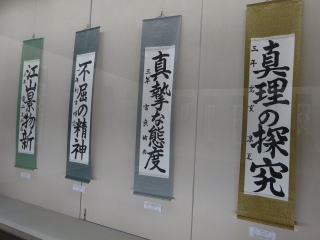 江山景物新
不屈の精神
真摯な態度
三年
真理の探究
三年